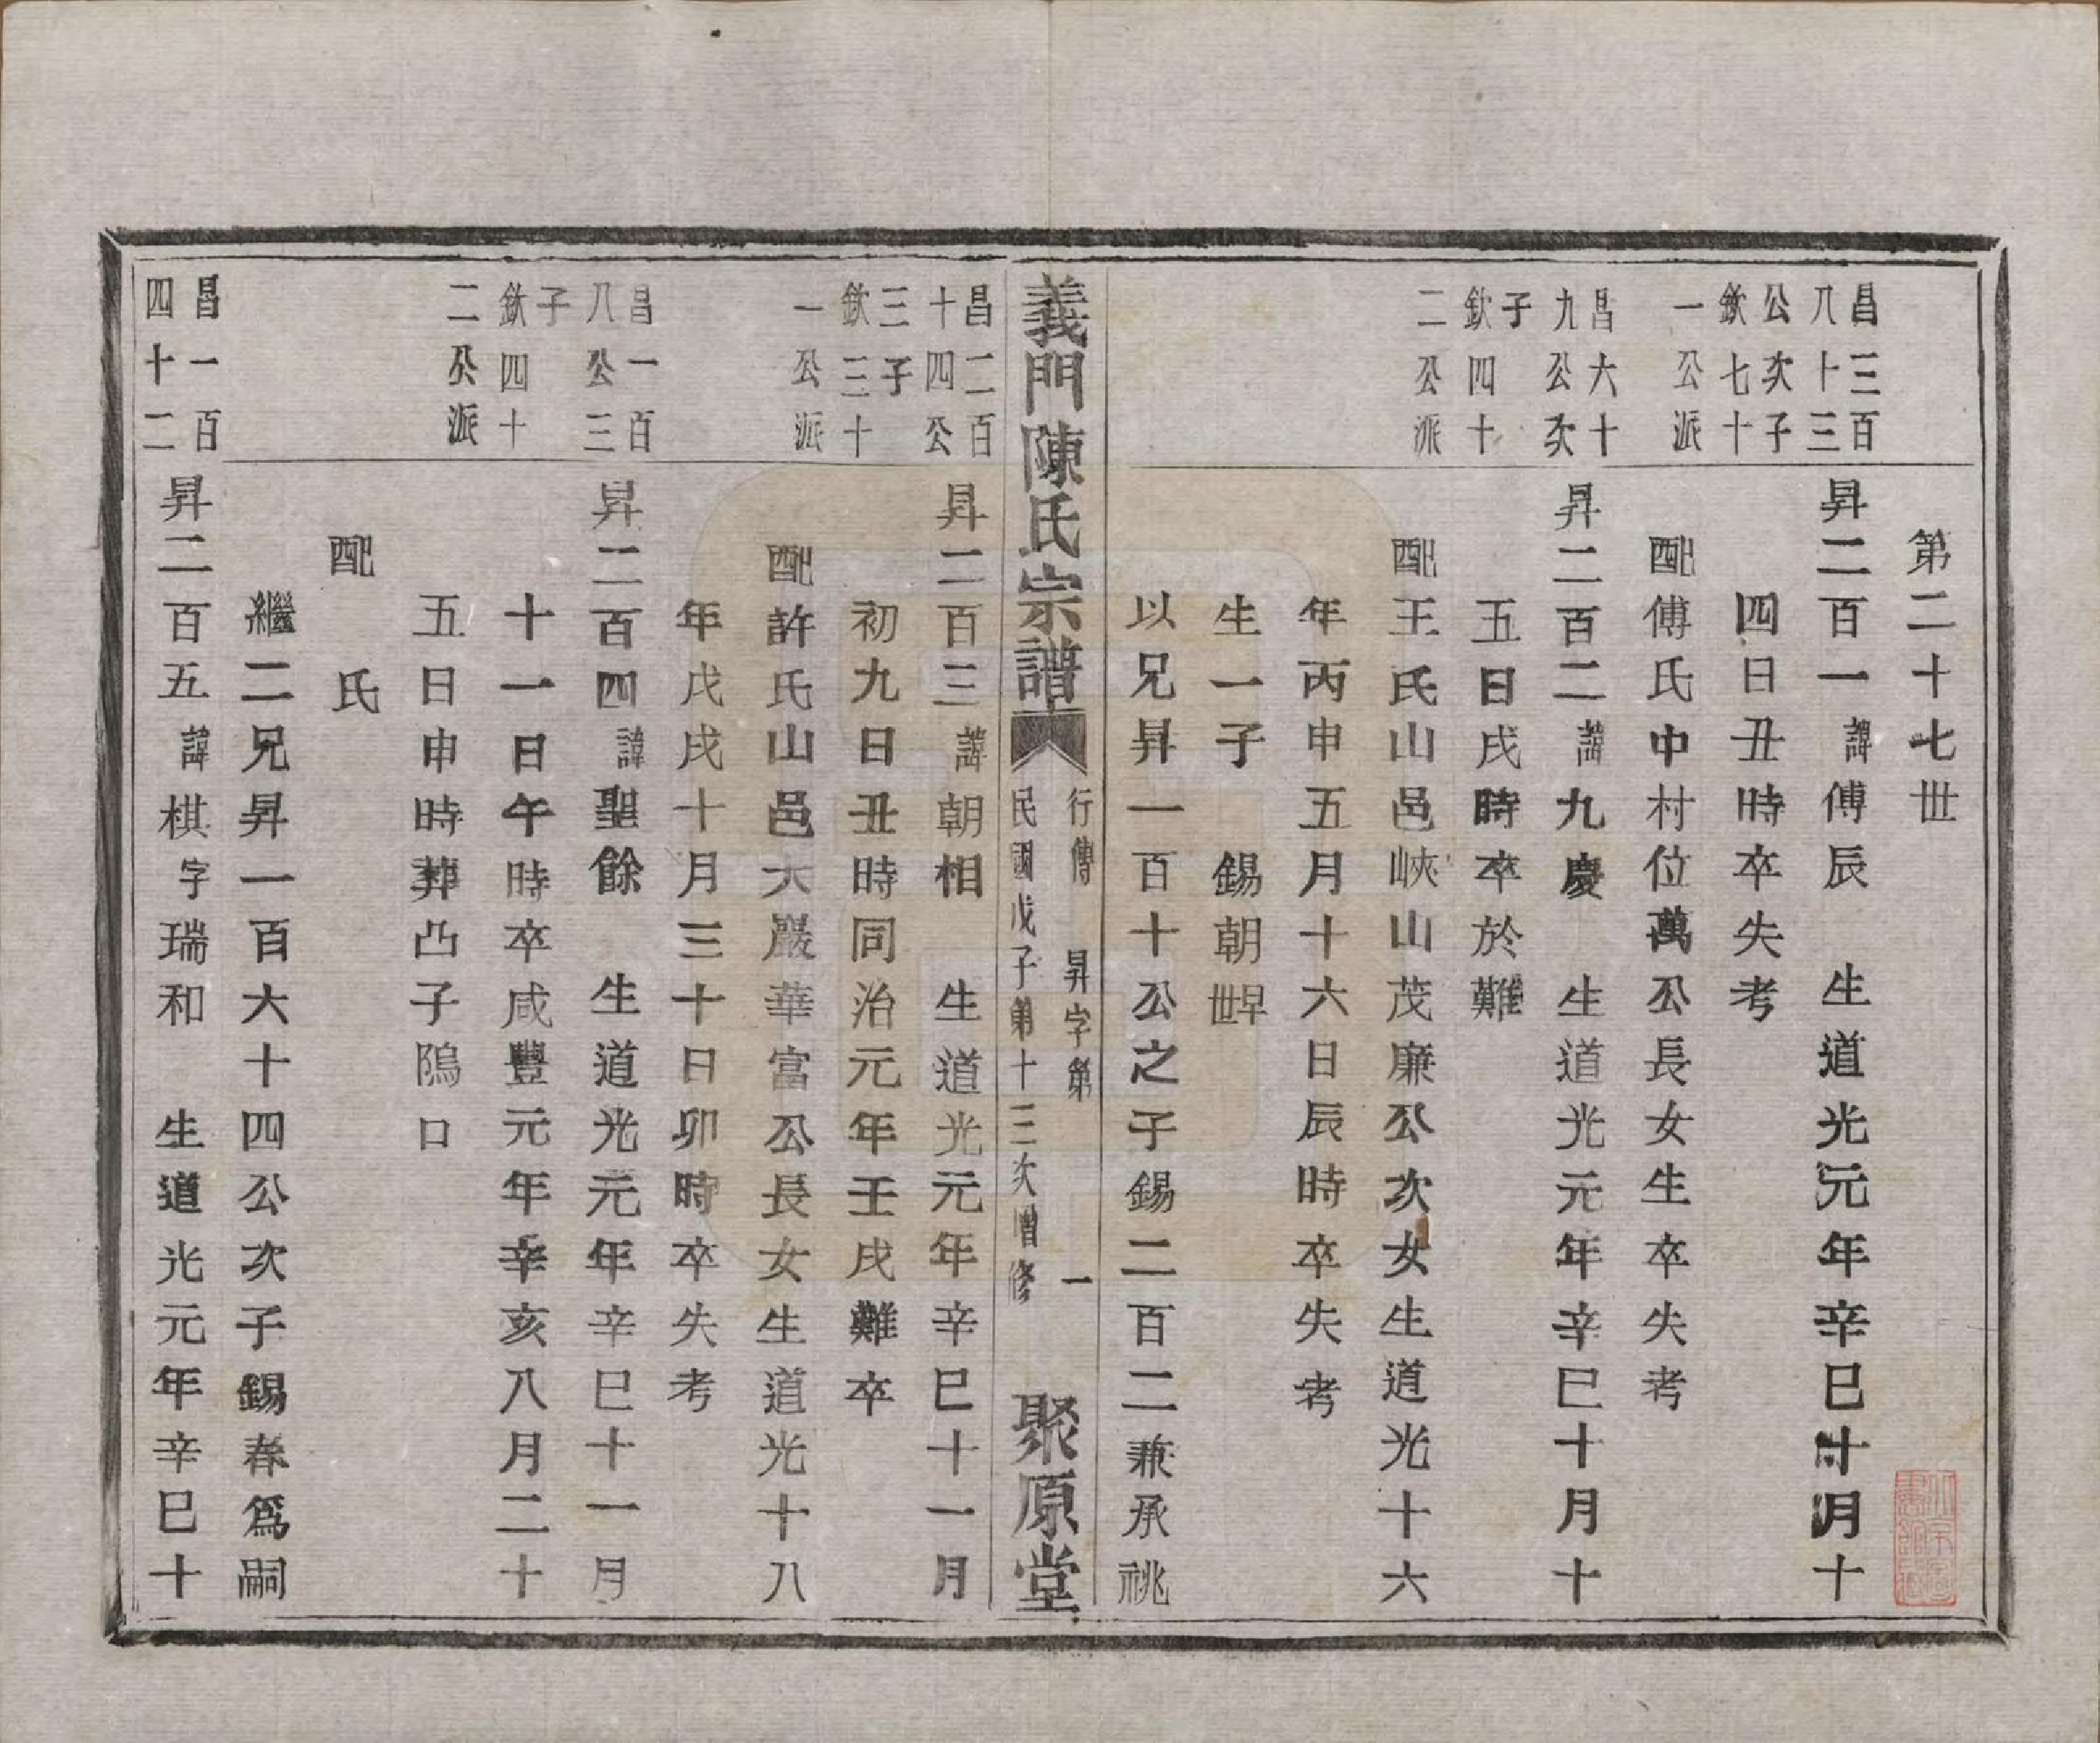 第二十七世
昌三百
八十三
公次子
欽七十
一公派
昇二百一諱傅辰 生道光元年辛巳十月十
四日丑時卒失考
配傅氏中村位萬公長女生卒失考
昌六十
九公次
子
欽四十
二公派
昇二百二諱九慶 生道光元年辛巳十月十
五日戌時卒於難
配王氏山邑峽山茂廉公次女生道光十六
年丙申五月十六日辰時卒失考
生一子 錫朝早世
以兄昇一百十公之子錫二百二兼承祧
義門陳氏宗譜
行傳 昇字第 一
民國戊子第十三次增修
聚原堂
昌二百
十四公
三子
欽三十
一公派
昇二百三諱朝相 生道光元年辛巳十一月
初九日丑時同治元年壬戌難卒
配許氏山邑大嚴華富公長女生道光十八
年戊戌十月三十日卯時卒失考
昌一百
八公三
子
欽四十
二公派
昇二百四諱聖餘 生道光元年辛巳十一月
十一日午時卒咸豐元年辛亥八月二十
五日申時葬凸子隝口
配 氏
繼二兄昇一百六十四公次子錫春爲嗣
昌一百
四十二
昇二百五諱棋字瑞和 生道光元年辛巳十